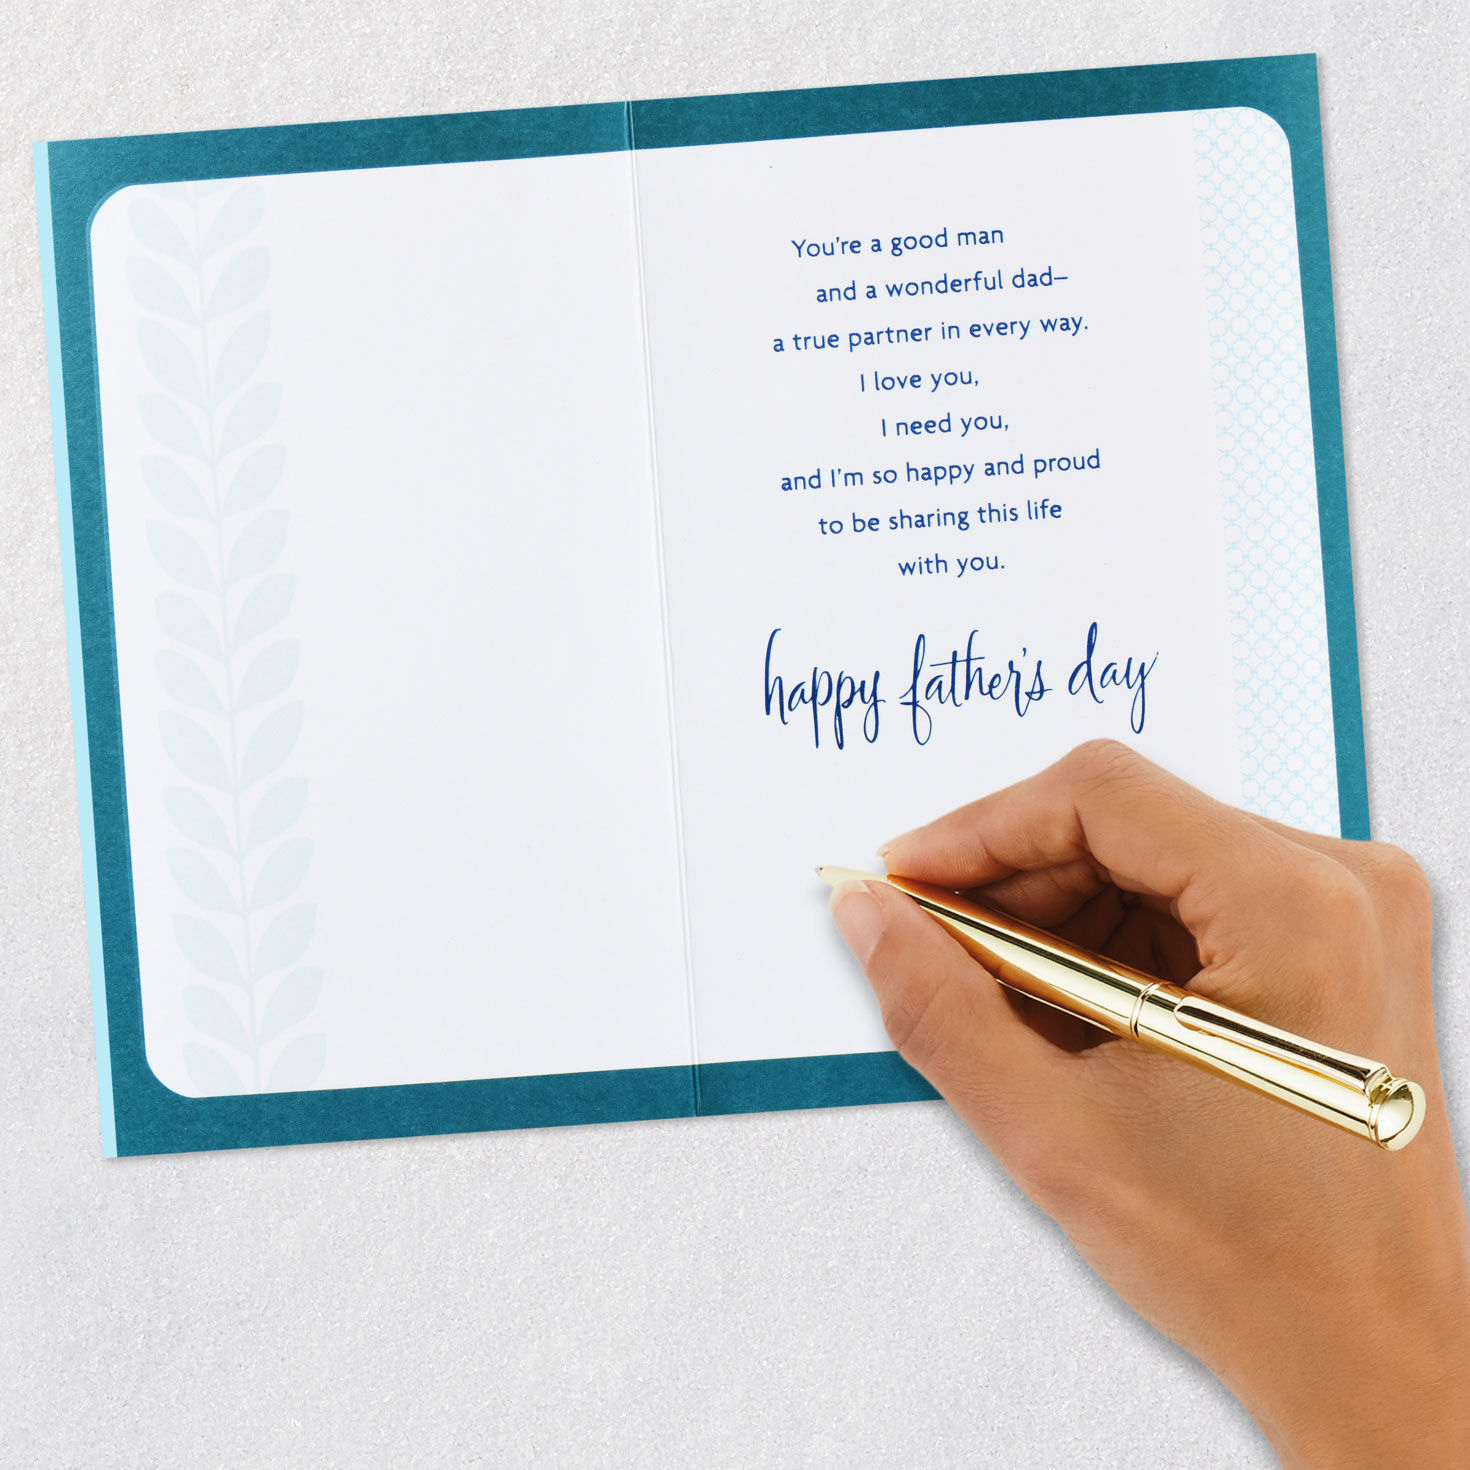 You're a good man
and a wonderful dad–
a true partner in every way.
I love you,
I need you,
and I'm so happy and proud
to be sharing this life
with you.
happy father's day